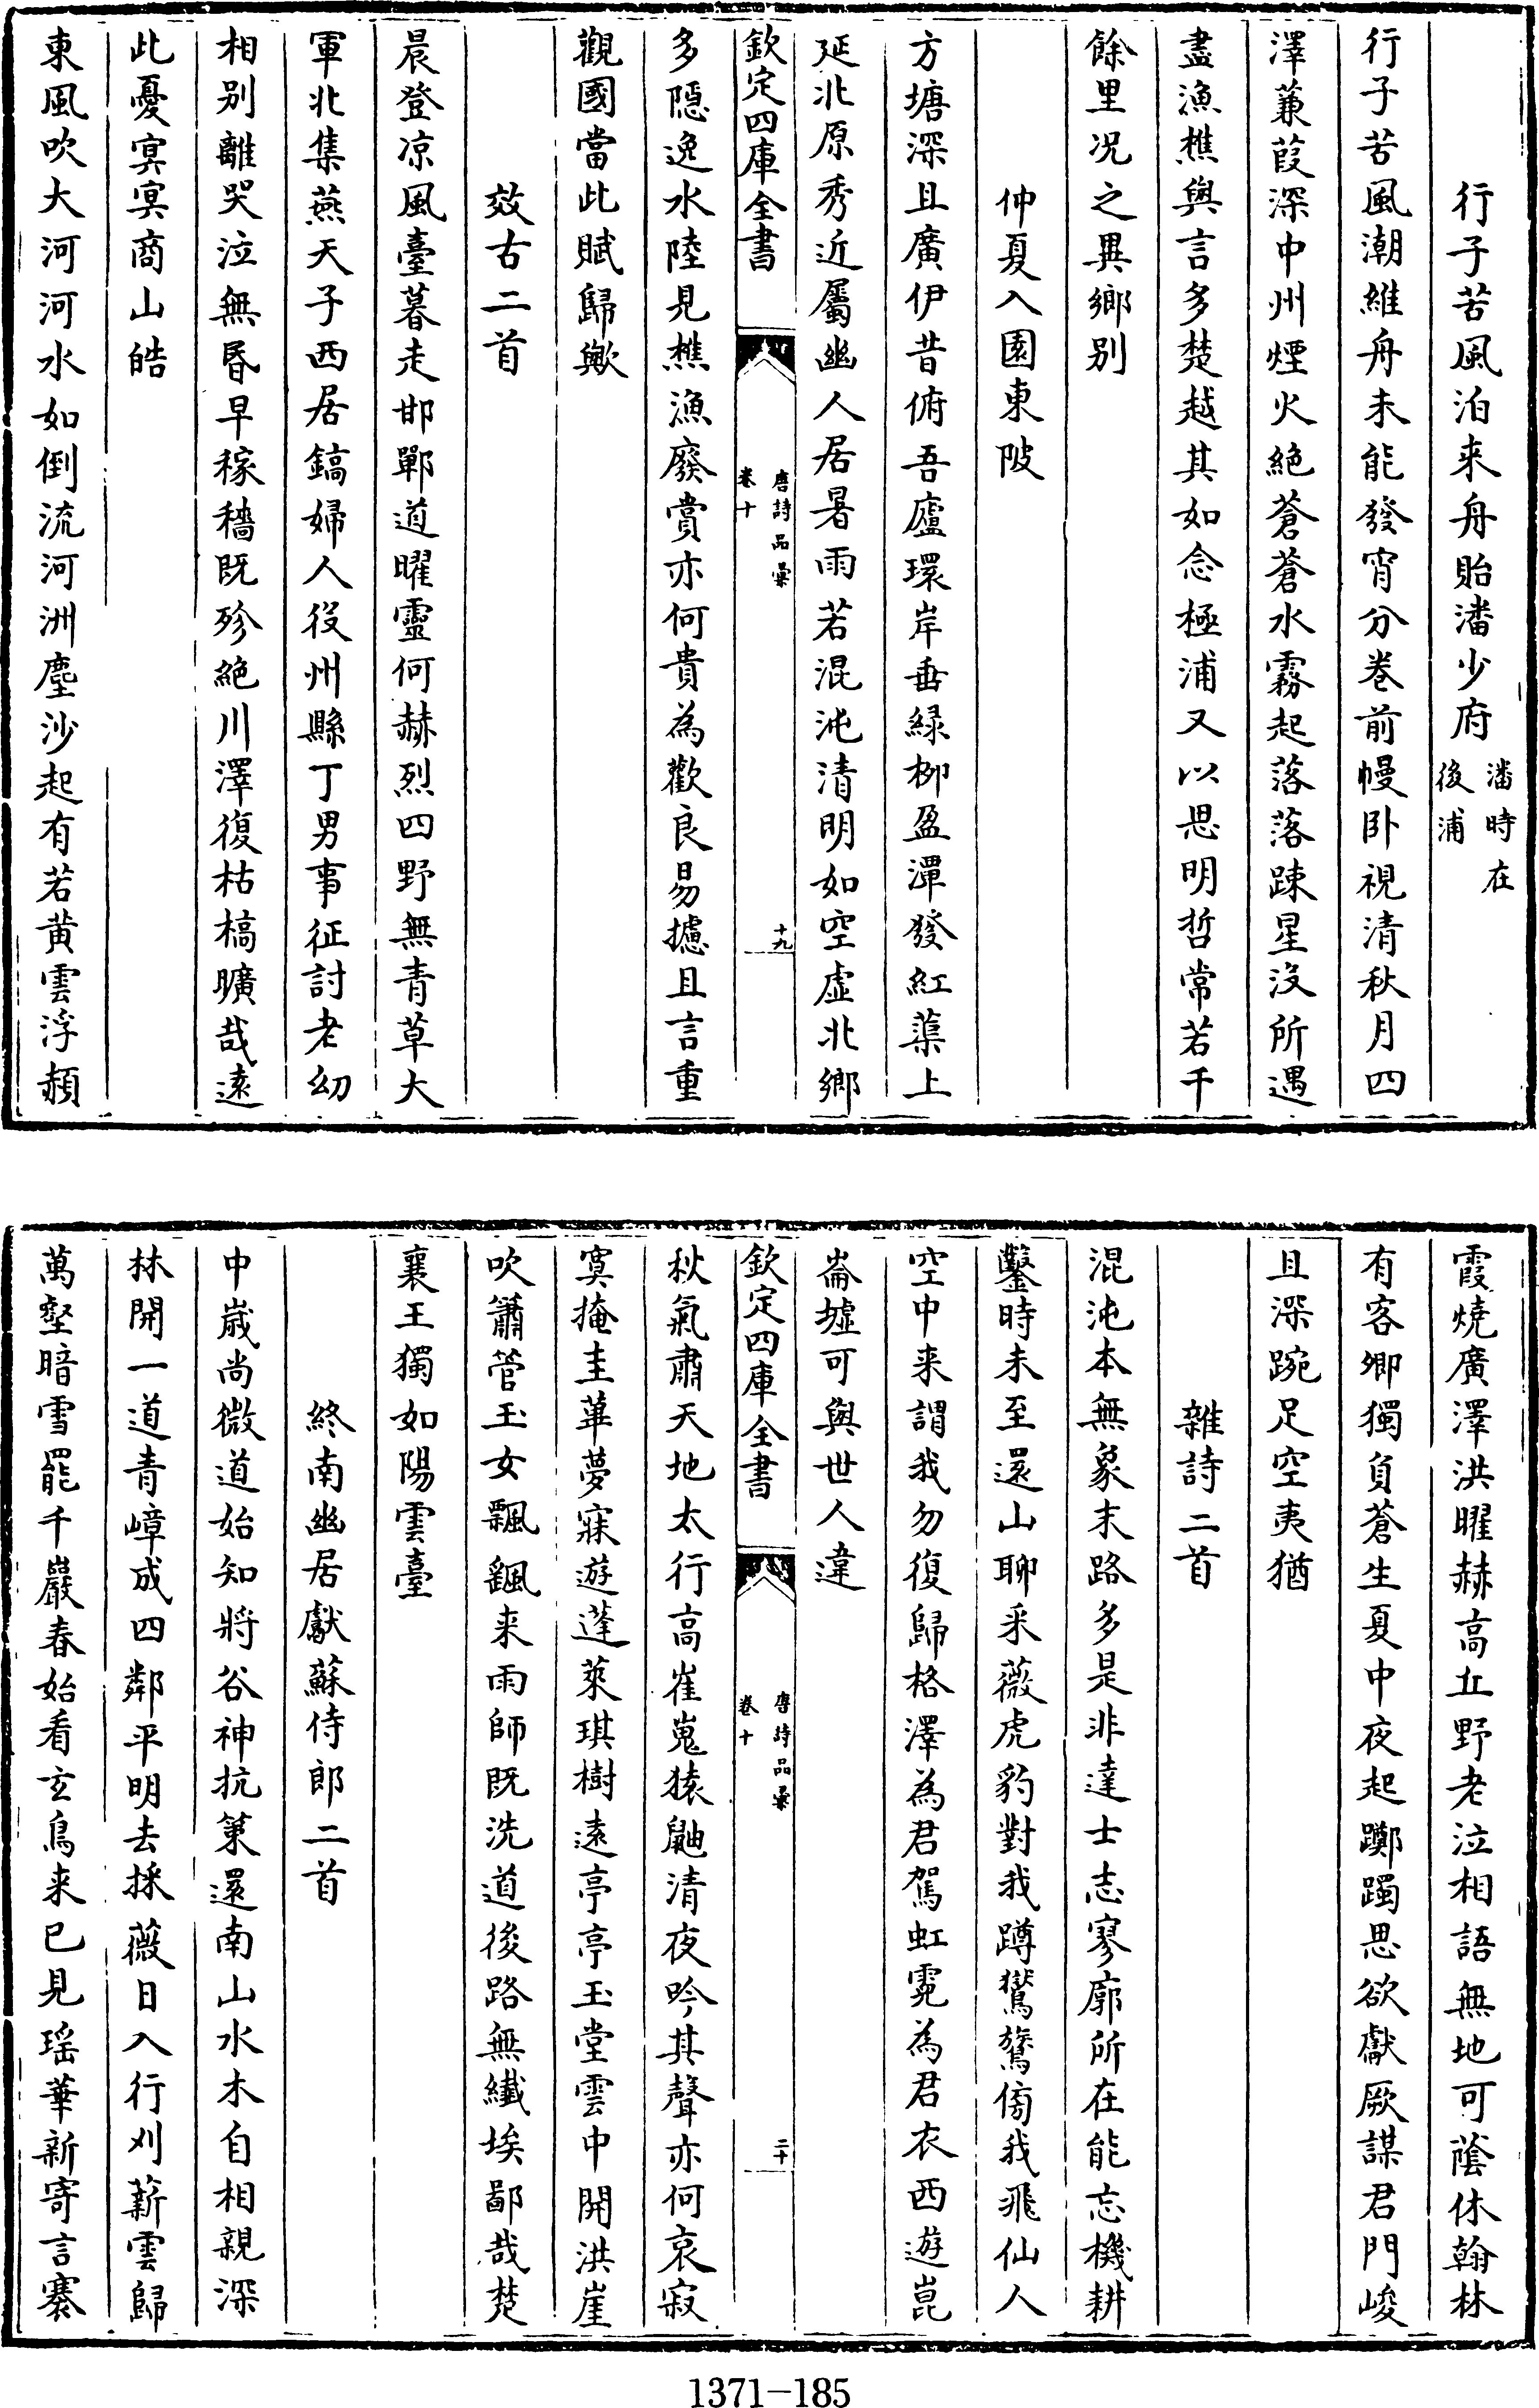 行子苦風泊来舟貽潘少府潘時在後浦
行子苦風潮維舟未能發宵分巻前幔卧視清秋月四
澤蒹葭深中州煙火絶蒼蒼水霧起落落踈星沒所遇
盡漁樵與言多楚越其如念極浦又以思明哲常若千
餘里况之異鄉别
仲夏入園東陂
方塘深且廣伊昔俯吾廬環岸垂緑栁盈潭發紅蕖上
延北原秀近屬幽人居暑雨若混沌清明如空虚北鄉
欽定四庫全書
唐詩品彚
卷十
十九
多隠逸水陸見樵漁廢賞亦何貴為歡良易攄且言重
觀國當此賦歸歟
效古二首
晨登凉風臺暮走邯鄲道曜靈何赫烈四野無青草大
軍北集燕天子西居鎬婦人役州縣丁男事征討老幼
相别離哭泣無昏早稼穡既殄絶川澤復枯槁曠哉逺
此憂㝠㝠商山皓
東風吹大河河水如倒流河洲塵沙起有若黄雲浮頳
霞燒廣澤洪曜赫高丘野老泣相語無地可蔭休翰林
有客卿獨負蒼生夏中夜起躑躅思欲獻厥謀君門峻
且深踠足空夷猶
雜詩二首
混沌本無象末路多是非達士志寥廓所在能忘機耕
鑿時未至還山聊采薇虎豹對我蹲鸑鷟傍我飛仙人
空中来謂我勿復歸格澤為君駕虹霓為君衣西遊崑
崙墟可與世人違
欽定四庫全書
唐詩品彚
卷十
二十
秋氣肅天地太行高崔嵬猿鼬清夜吟其聲亦何哀寂
寞掩圭蓽夢寐遊蓬萊琪樹逺亭亭玉堂雲中開洪崖
吹簫管玉女飄飖来雨師既洗道後路無纎埃鄙哉楚
襄王獨如陽雲臺
終南幽居獻蘇侍郎二首
中歲尚微道始知將谷神抗策還南山水木自相親深
林開一道青嶂成四鄰平明去採薇日入行刈薪雲歸
萬壑暗雪罷千巖春始看玄鳥来已見瑶華新寄言搴
1371-185